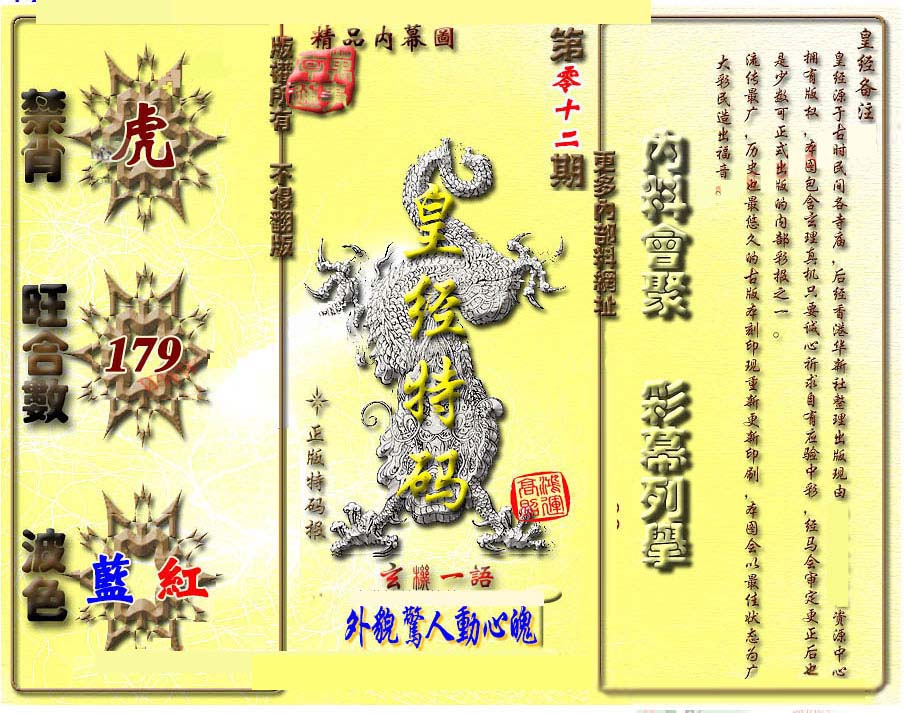 精品内幕圖
版權所有 不得翻版
第零十二期
更多内部料網址
禁肖
虎
旺合數
179
波色
藍 紅
皇经特码
正版特码报
鴻運高照
玄機一語
外貌驚人動心魄
内料會聚 彩幕列擧
皇经备注
皇经源于古时民间各寺庙，后经香港华新社整理出版现由 资源中心
拥有版权，本图包含玄理真机只要诚心祈求自有应验中彩，经马会审定更正后也
是少数可正式出版的内部彩报之一。
流传最广，历史也最悠久的古版本刻印现重新更新印刷，本图会以最佳状态为广
大彩民造出福音